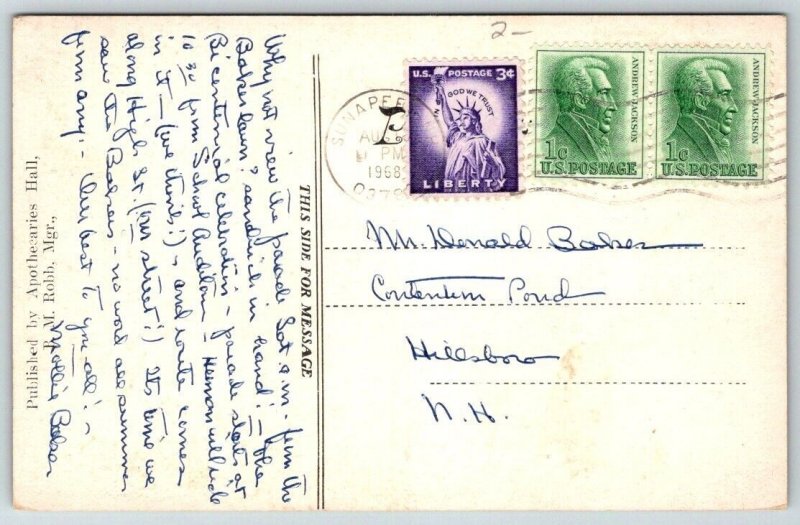 2-
U.S. POSTAGE 3¢
IN GOD WE TRUST
LIBERTY
ANDREW JACKSON
1c
U.S. POSTAGE
ANDREW JACKSON
1c
U.S. POSTAGE
SUNAPEE
AUG
PM
1968
Why not view the parade Sat. a.m. - from the
Baker lawn? sandwich in hand! - The
Bicentennial celebration - parade starts at
10 30 from School Auditorium - Herman will ride
in it - (we thinks!) - and route comes
along High St. (our street!) Its time we
saw the Bakers - no word all summer
from any! - Our best to you all! -
Mollie Baker
THIS SIDE FOR MESSAGE
Published by Apothecaries Hall,
M. Robb, Mgr.,
Mr. Donald Baker
Contention Pond
Hillsboro
N. H.